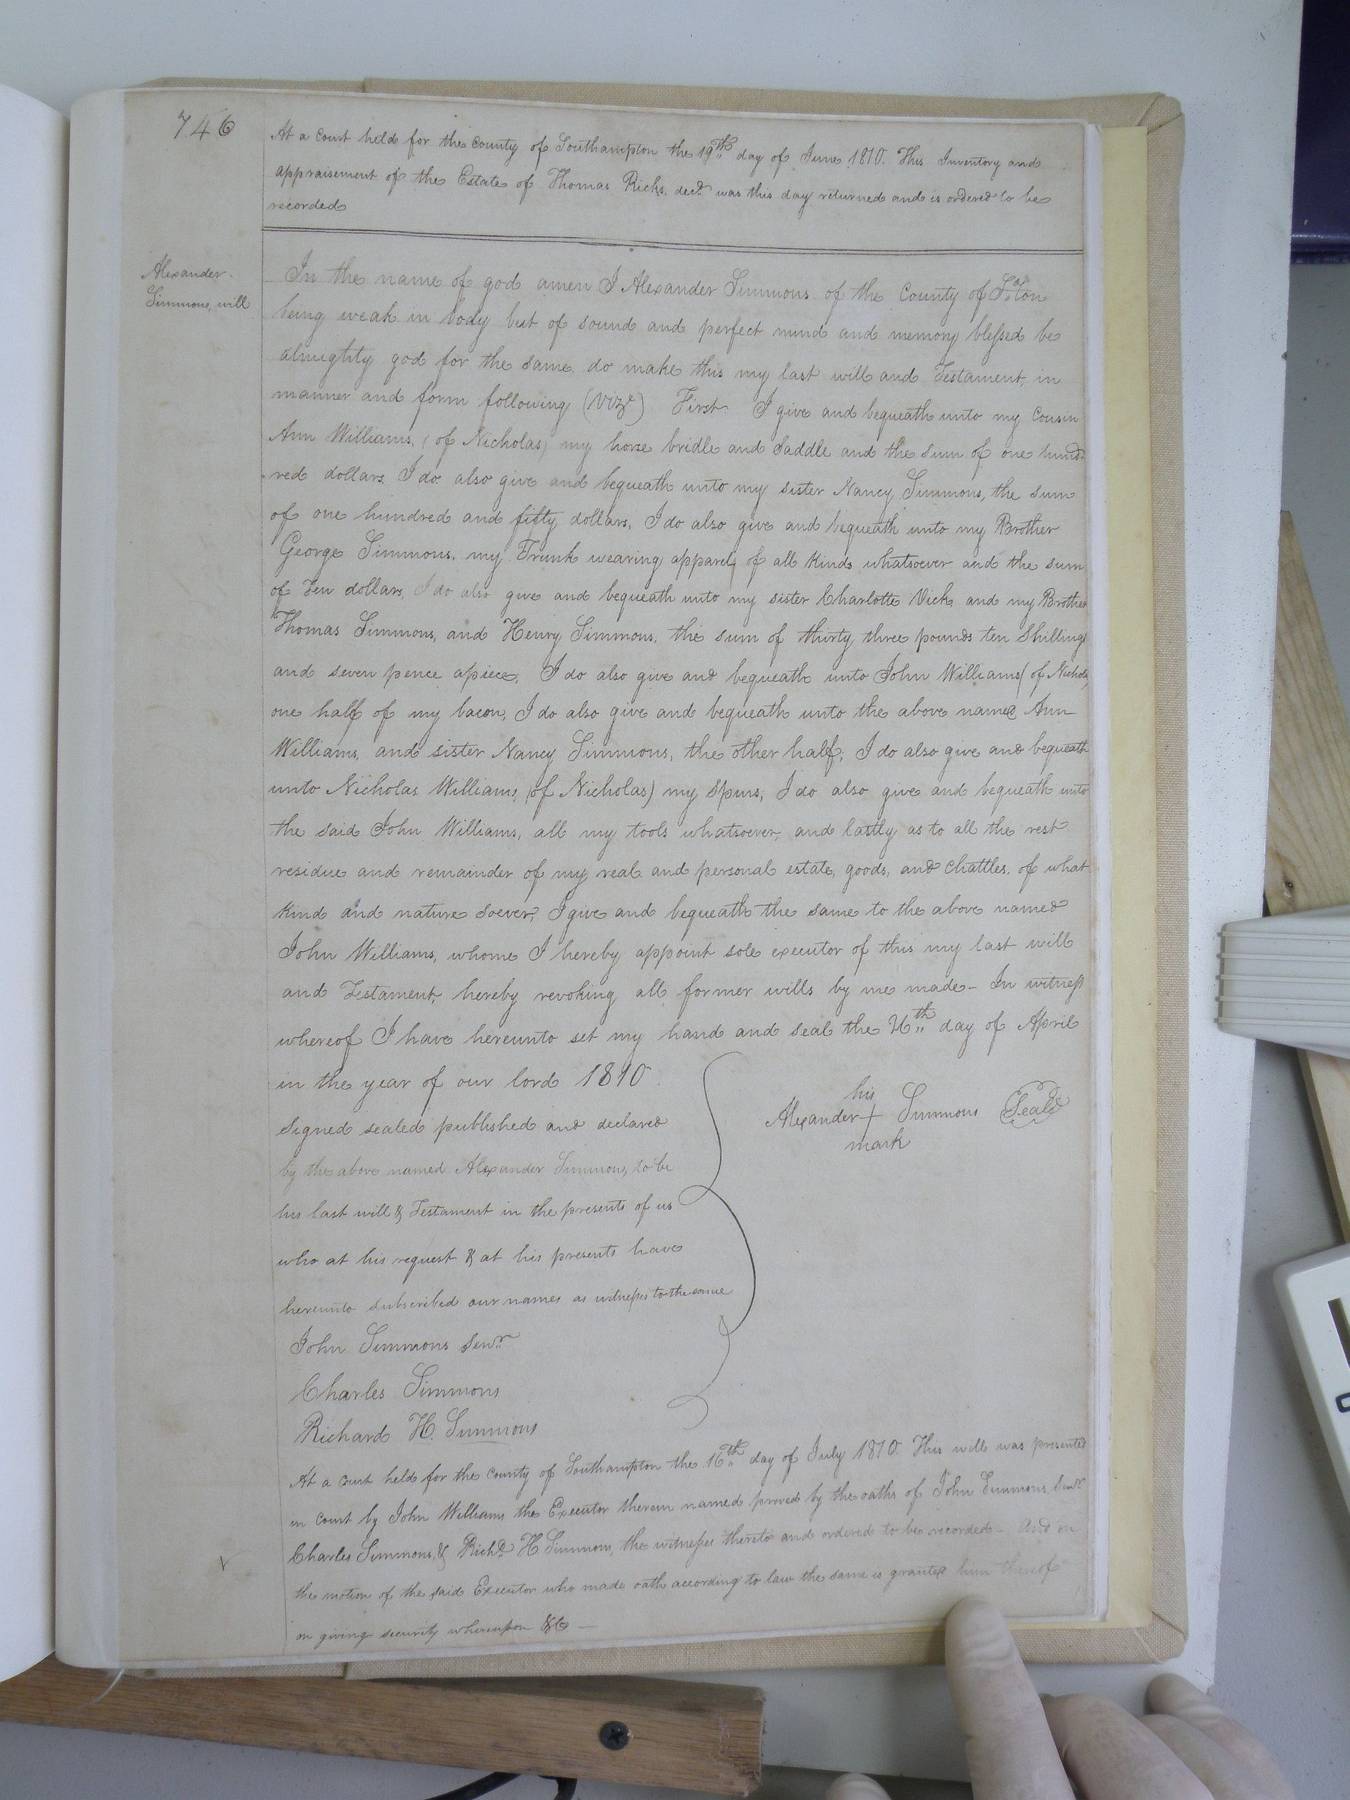 746
At a Court held for the County of Southampton the 19th day of June 1810. This Inventory and
appraisement of the Estate of Thomas Ricks, decd. was this day returned and is ordered to be
recorded
Alexander
Simmons, will
In the name of god amen I Alexander Simmons of the County of S.ton
being weak in body but of sound and perfect mind and memory blessed be
almighty god for the same, do make this my last will and Testament, in
manner and form following (Vizt) First I give and bequeath unto my Cousin
Ann Williams, (of Nicholas) my horse bridle and Saddle and the sum of one hund-
red dollars, I do also give and bequeath unto my sister Nancy Simmons, the sum
of one hundred and fifty dollars, I do also give and bequeath unto my Brother
George Simmons, my Trunk wearing apparel, of all kinds whatsoever and the sum
of Ten dollars, I do also give and bequeath unto my sister Charlotte Vick, and my Brother
Thomas Simmons, and Henry Simmons, the sum of thirty three pounds ten Shillings
and seven pence apiece, I do also give and bequeath unto John Williams (of Nicholas
one half of my bacon, I do also give and bequeath unto the above named Ann
Williams, and sister Nancy Simmons, the other half, I do also give and bequeath
unto Nicholas Williams, (of Nicholas) my Spurs, I do also give and bequeath unto
the said John Williams, all my tools whatsoever, and lastly as to all the rest
residue and remainder of my real and personal estate, goods, and Chattles, of what
kind and nature soever, I give and bequeath the same to the above named
John Williams, whome I hereby appoint sole executor of this my last will
and Testament, hereby revoking all former wills by me made - In witness
whereof I have hereunto set my hand and seal the 26th day of April
in the year of our lord 1810
Signed sealed published and declared
by the above named Alexander Simmons, to be
his last will & Testament in the presents of us
who at his request & at his presents have
hereunto subscribed our names as witnesses to the same
his
Alexander + Simmons Seal
mark
John Simmons Senr
Charles Simmons
Richard H. Simmons
At a court held for the County of Southampton the 16th day of July 1810. This will was presented
in Court by John Williams the Executor therein named proved by the oaths of John Simmons, Senr
Charles Simmons, & Richd H Simmons, the witnesses thereto and ordered to be recorded - And on
the motion of the said Executor who made oath according to law the same is granted him thereof
on giving security whereupon &C -